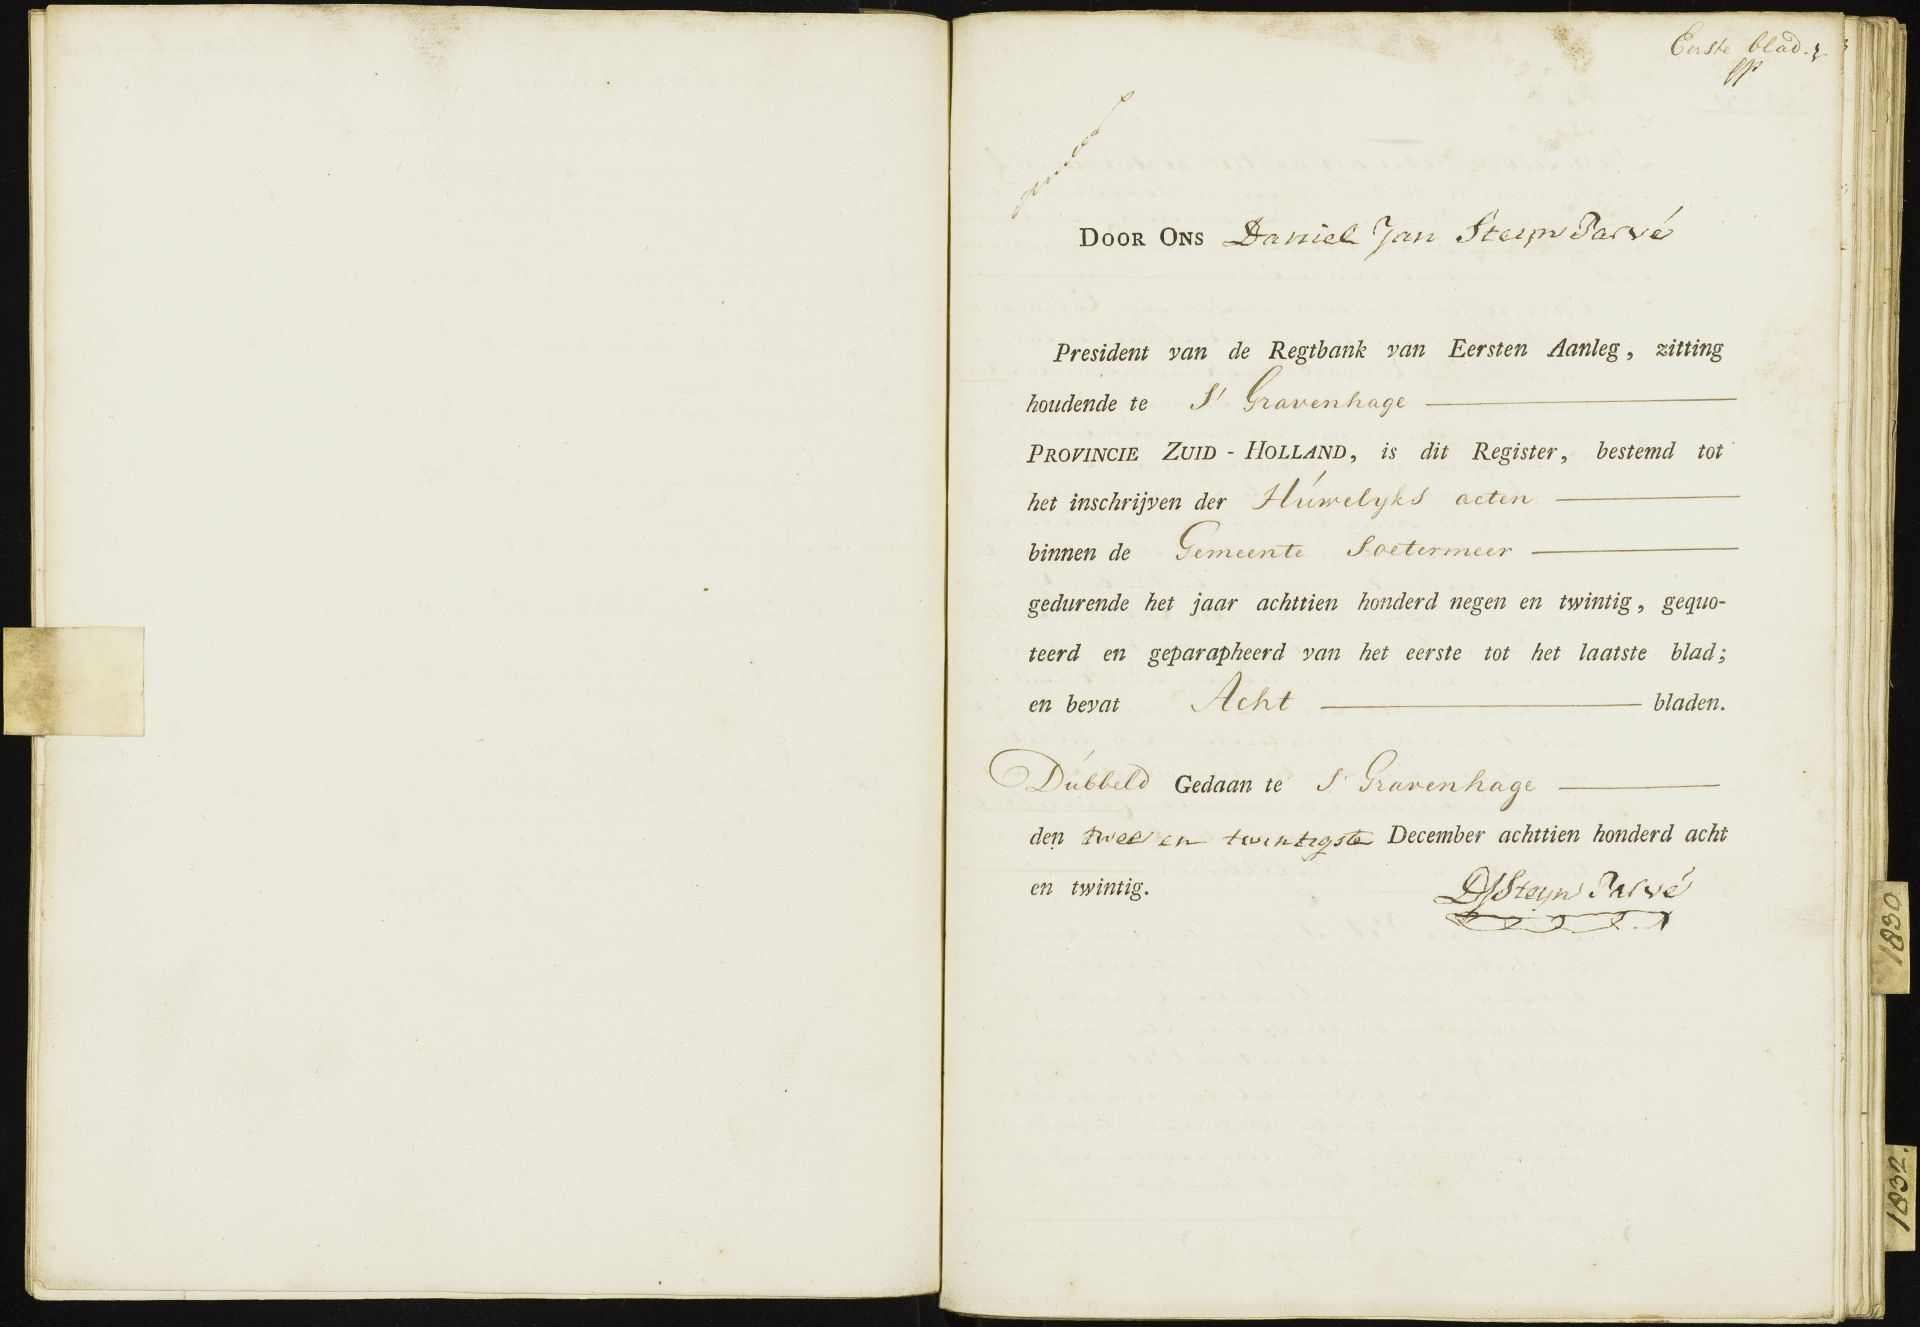 Eerste blad.
DOOR ONS Daniel Jan Steyn Parvé
President van de Regtbank van Eersten Aanleg, zitting
houdende te S' Gravenhage
PROVINCIE ZUID - HOLLAND, is dit Register, bestemd tot
het inschrijven der Húwelyks acten
binnen de Gemeente Soetermeer
gedurende het jaar achttien honderd negen en twintig, gequo-
teerd en geparapheerd van het eerste tot het laatste blad;
en bevat Acht bladen.
Dúbbeld Gedaan te S' Gravenhage
den twee en twintigste December achttien honderd acht
en twintig.
DJSteyn Parvé
1830
1832.